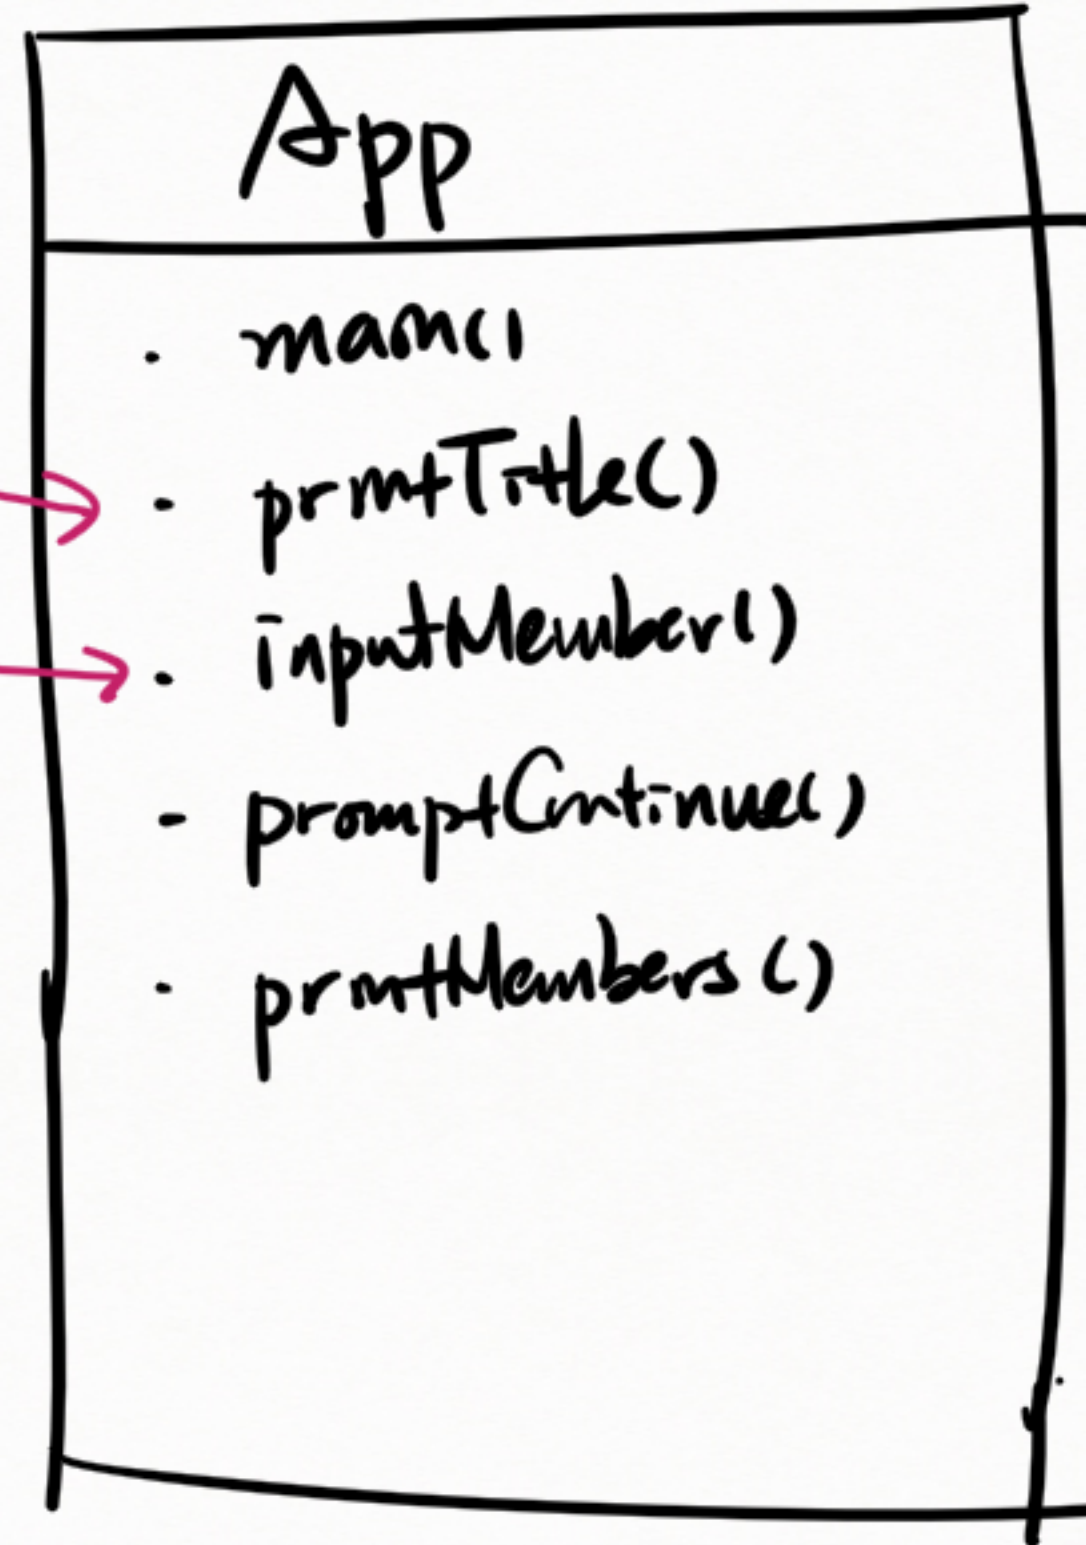 App
· main()
· printTitle()
· inputMember()
- promptContinue()
· printMembers()